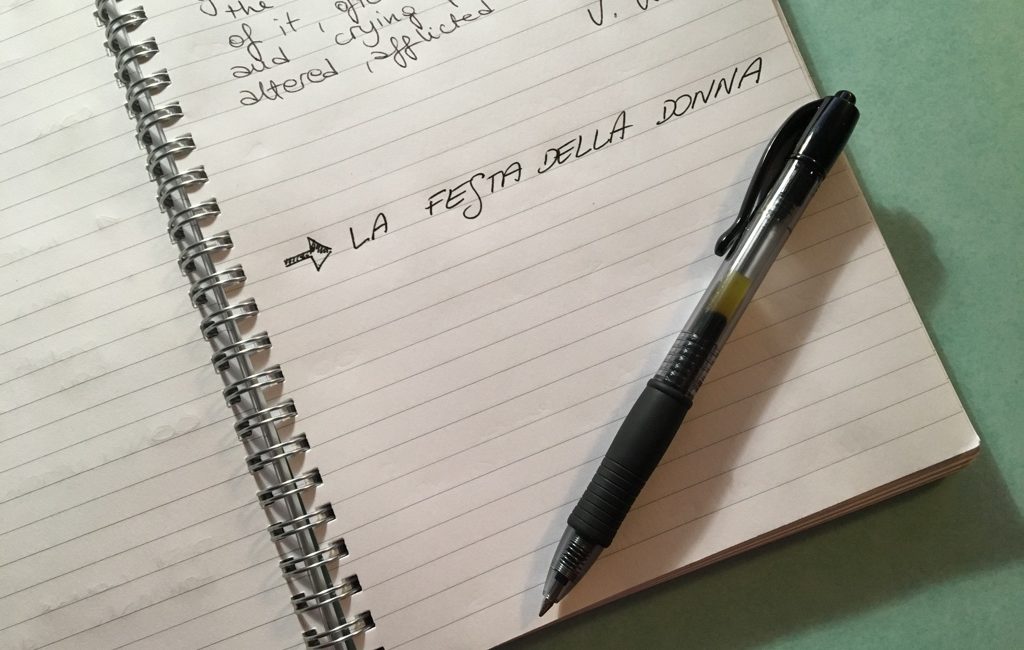 the
of it,
and crying
altered, afflicted
LA FESTA DELLA DONNA